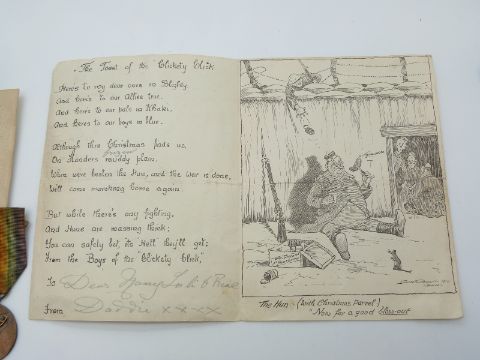 "The Toast of the Blickety Blick"
Here's to my dear ones in Blighty,
And here's to our Allies true,
And here's to our pals in Khaki,
And heres to our boys in blue.
Although this Christmas finds us,
On Flanders frozen muddy plain,
When we've beaten the Hun, and the War is done,
We'll come marching home again.
But while there's any fighting,
And Huns are massing thick;
You can safely bet, its Hell they'll get;
From the Boys of the Blickety Blick."
To Dear
From Daddie xxxx
The Hun (with Christmas Parcel)
"Now for a good blow-out